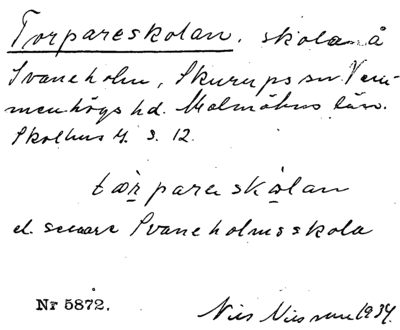 Torpareskolan. skola å
Svaneholm, Skurups sn. Vem-
menhögs hd. Malmöhus län.
Skolhus 4. s. 12.
tårpareskålan
el. snare Svaneholmsskola
Nr 5872.
Nils Nilsson 1934.